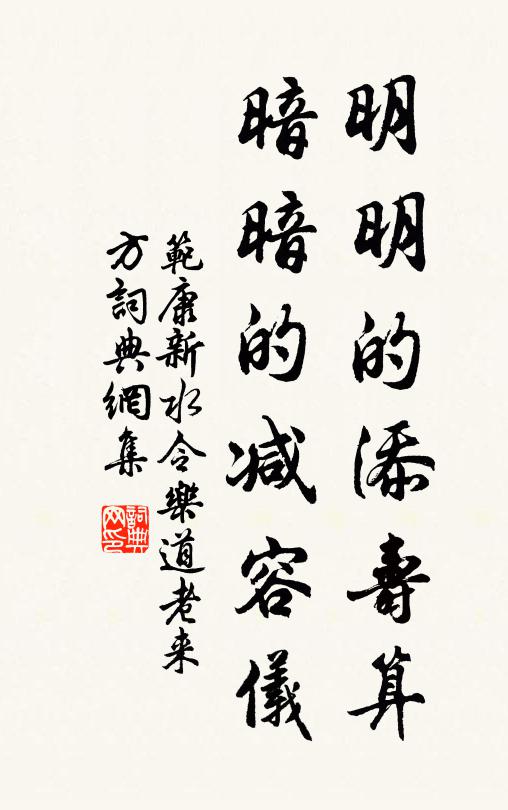 明明的添壽算
暗暗的减容儀
範康新水令樂道老来
方詞典網集
詞典网印